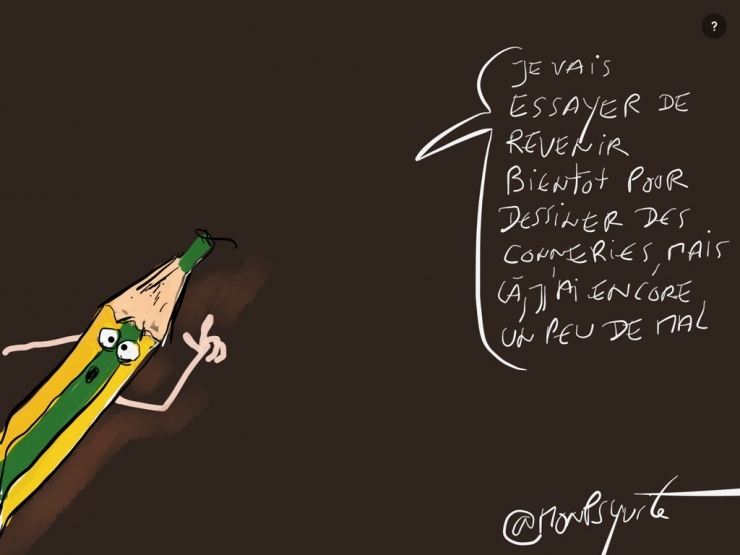 ?
JE VAIS
ESSAYER DE
REVENIR
BIENTOT POUR
DESSINER DES
CONNERIES, MAIS
LÀ, J'AI ENCORE
UN PEU DE MAL
@MONPSYURTE